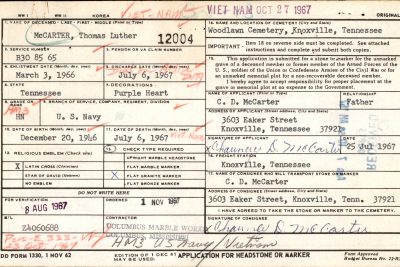 WW I WW II KOREA VIET NAM VIET NAM OCT 27 1967
1. NAME OF DECEASED - LAST - FIRST - MIDDLE (Print or Type)
McCARTER, Thomas Luther 12004
2. SERVICE NUMBER
B30 85 65
3. PENSION OR VA CLAIM NUMBER
4. ENLISTMENT DATE
March 3, 1966
July 6, 1967
7. STATE
Tennessee
8. DECORATIONS
Purple Heart
9. BRANCH OF SERVICE, COMPANY, REGIMENT, DIVISION
HN U. S. Navy
HM3
December 20, 1946
11. DATE OF DEATH (Month, Day, Year)
July 6, 1967
12. RELIGIOUS EMBLEM (Check one)
CHECK TYPE REQUIRED
UPRIGHT MARBLE HEADSTONE
X LATIN CROSS (Christian)
FLAT MARBLE MARKER
STAR OF DAVID (Hebrew)
X FLAT GRANITE MARKER
NO EMBLEM
FLAT BRONZE MARKER
DO NOT WRITE HERE
FOR VERIFICATION
8 AUG 1967
1 NOV 1967
ZA060688
COLUMBUS MARBLE WORKS
COLUMBUS MISSISSIPPI
HM3 US Navy/Vietnam
DD FORM 1330, 1 NOV 62
EDITION OF 1 DEC 61 MAY BE USED
14. NAME AND LOCATION OF CEMETERY (City and State)
Woodlawn Cemetery, Knoxville, Tennessee
IMPORTANT: Item 18 on reverse side must be completed. See attached instructions and complete and submit both copies.
This application is submitted for a stone or marker for the unmarked grave of a deceased member or former member of the Armed Forces of the U.S., soldier of the Union or Confederate Armies of the Civil War or for an unmarked memorial plot for a non-recoverable deceased member.
I hereby agree to accept responsibility for proper placement at the grave or memorial plot at no expense to the Government.
C. D. McCarter
RELATIONSHIP
Father
3603 Eaker Street
Knoxville, Tennessee 37921
Chauncie D. McCarter
25 July 1967
16. FREIGHT STATION
Knoxville, Tennessee
17. NAME OF CONSIGNEE WHO WILL TRANSPORT STONE OR MARKER
C. D. McCarter
3603 Eaker Street
Knoxville, Tenn. 37921
I HAVE AGREED TO TAKE THE STONE OR MARKER TO THE CEMETERY.
Chauncie D. McCarter
APPLICATION FOR HEADSTONE OR MARKER
Form Approved